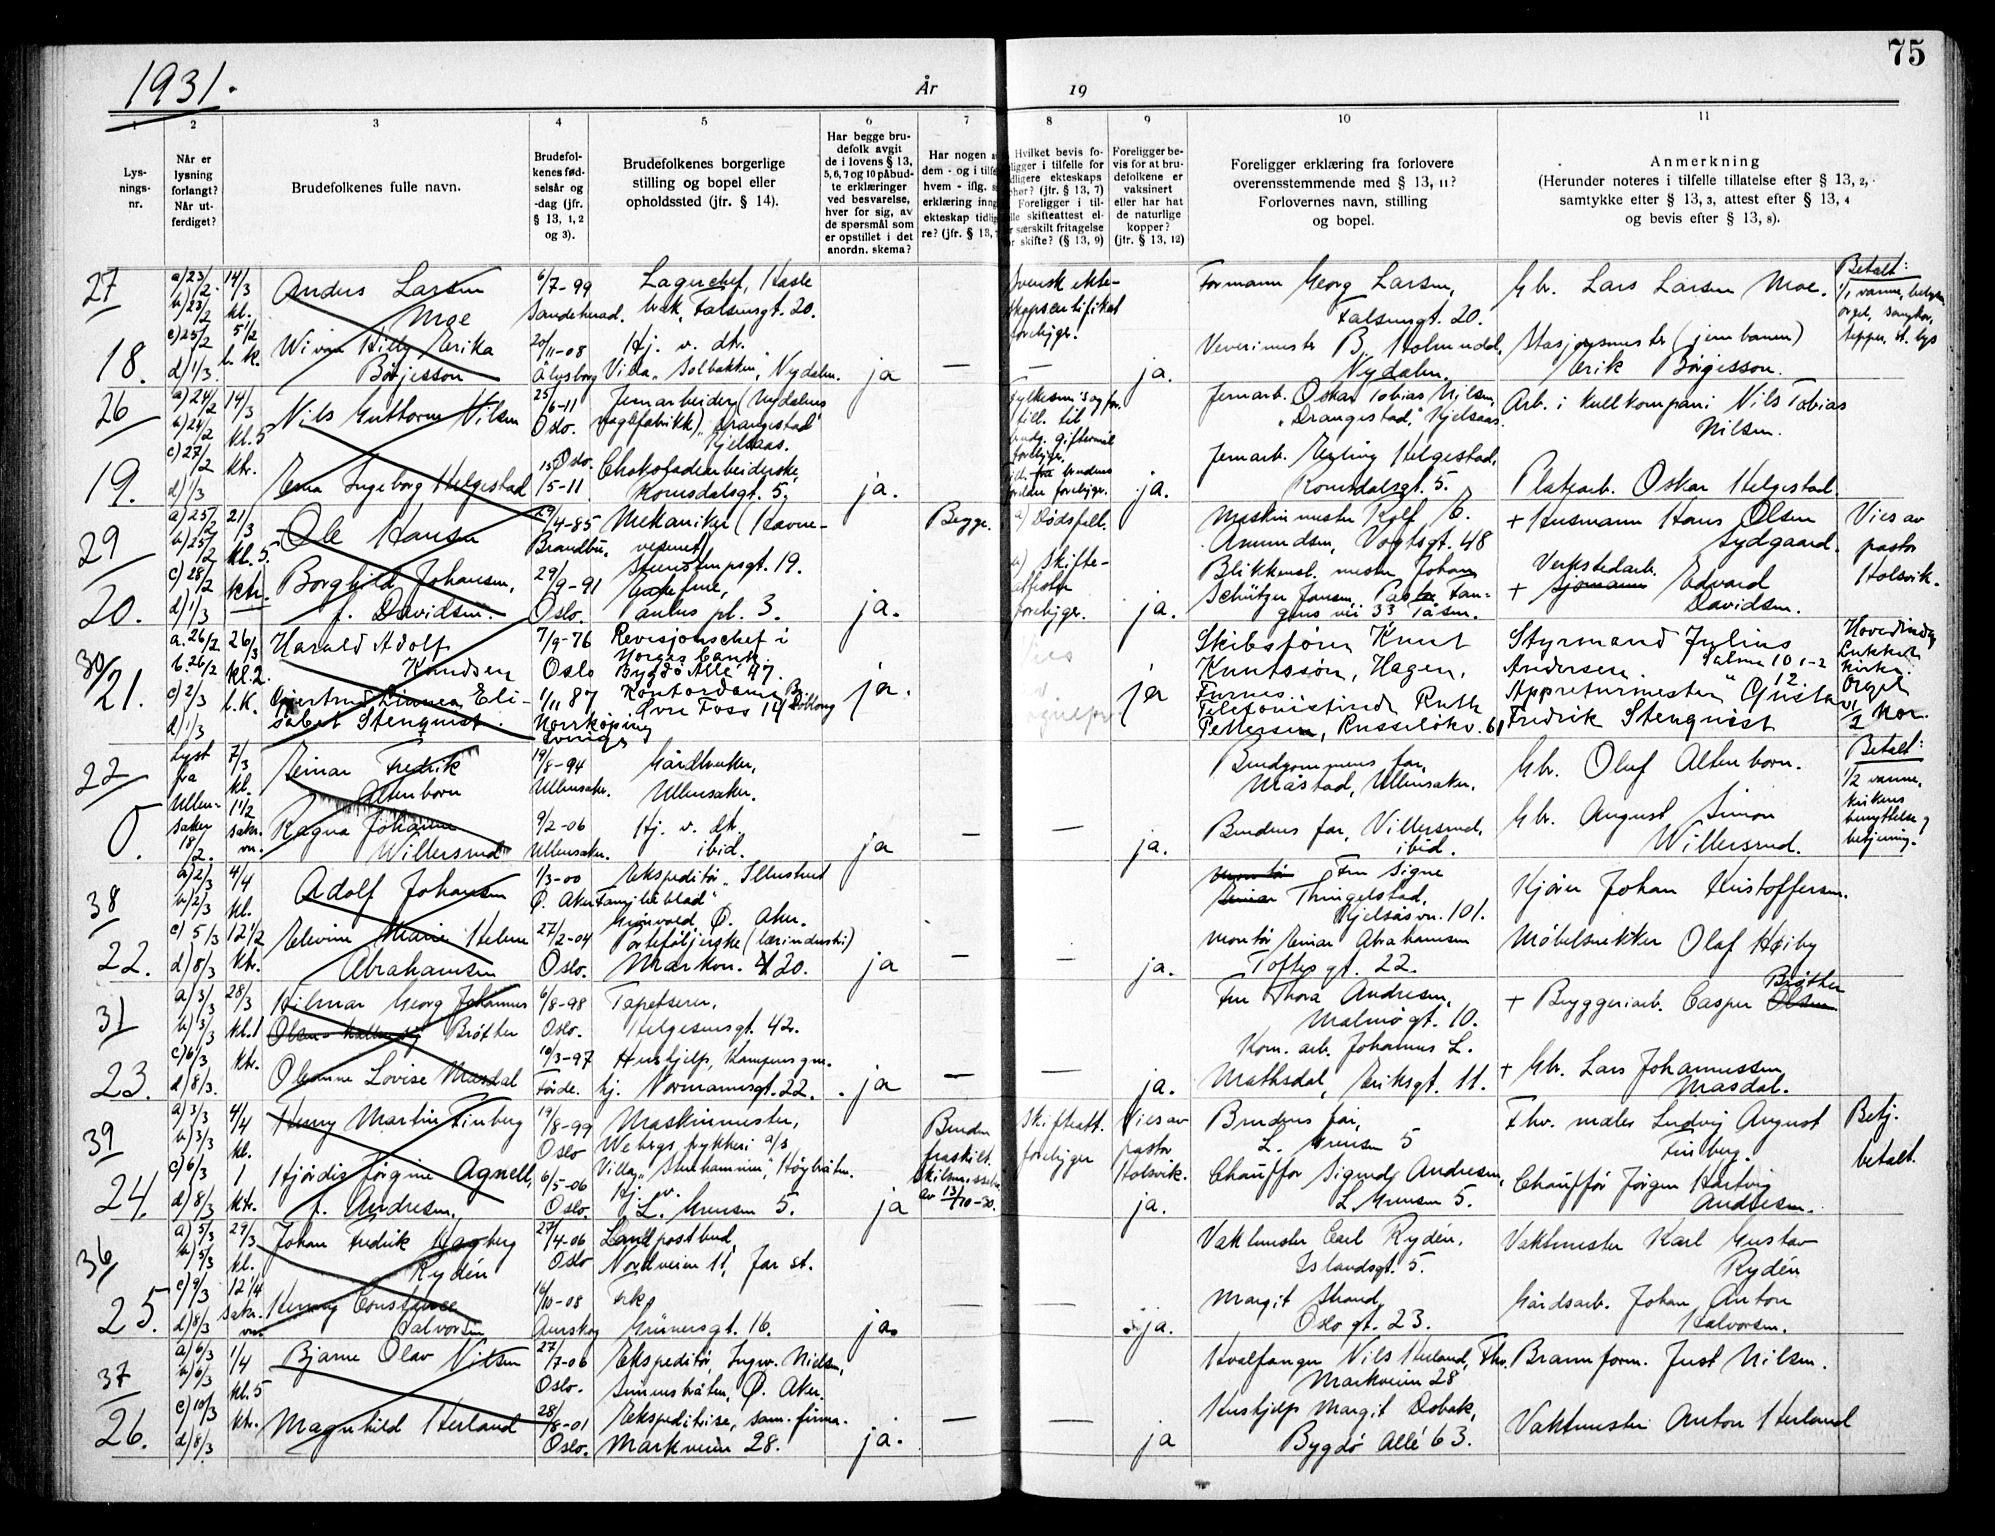 75
1931.
År
19
1
2
3
4
5
6
7
8
9
10
11
Lys-
nings-
nr.
Når er
lysning
forlangt?
Når ut-
ferdiget?
Brudefolkenes fulle navn.
Brudefol-
kenes fød-
selsår og
-dag (jfr.
§ 13, 1, 2
og 3).
Brudefolkenes borgerlige
stilling og bopel eller
opholdssted (jfr. § 14).
Har begge bru-
defolk avgit
de i lovens § 13,
5, 6, 7 og 10 påbud-
te erklæringer
ved besvarelse,
hver for sig, av
de spørsmål som
er opstillet i det
anordn. skema?
Har nogen
dem - og i tilfe
hvem - iflg. s
erklæring inng
ekteskap tidlig
re? (jfr. § 13,
Hvilket bevis fo-
ligger i tilfelle for
dligere ekteskaps
hør? (jfr. § 13, 7)
Foreligger i til-
lle skifteattest el-
r særskilt fritagelse
or skifte? (§ 13, 9)
Foreligger be-
vis for at bru-
defolkene er
vaksinert
eller har hat
de naturlige
kopper?
(jfr. § 13, 12)
Foreligger erklæring fra forlovere
overensstemmende med § 13, 11?
Forlovernes navn, stilling
og bopel.
Anmerkning
(Herunder noteres i tilfelle tillatelse efter § 13, 2,
samtykke efter § 13, 3, attest efter § 13, 4
og bevis efter § 13, 8).
27
18.
a) 23/2
b) 23/2
c) 25/2
d) 1/3.
14/3
kl.
5 1/2
Anders Larsen
Moe
Börjesson
6/7-99
Sandeherad.
20/11-08
Älvsborg
Lagerchef, Hasle
Falsensgt. 20.
Hj. v. do.
Villa "Solbakken", Nydalen.
ja
—
Svensk ekte-
skapscertifikat
foreligger.
—
ja.
Formann Georg Larsen,
Falsensgt. 20.
Nydalen.
Gbr. Lars Larsen Moe.
Stasjonsmester (jernbanen)
Erik Börjesson.
Betalt:
26
19.
a) 24/2
b) 24/2
c) 27/2
d) 1/3
14/3
kl. 5
ktr.
Nils Guttorm Nilsen
Erna Ingeborg Helgestad
25/6-11
Oslo.
Oslo.
15/5-11
Jernarbeider (Nydalens
"Drangestad"
Kjelsaas.
Chokoladearbeiderske,
Romsdalsgt. 5.
ja.
foreligger.
ja.
Jernarb. Oskar Tobias Nilsen,
"Drangestad", Kjelsaas.
Jernarb. Erling Helgestad,
Romsdalsgt. 5.
Arb. i kullkompani Nils Tobias
Nilsen.
Platearb. Oskar Helgestad.
29
20.
a) 25/2
b) 25/2
c) 28/2
d) 1/3
21/3
kl. 5.
ktr.
Ole Hansen
Borghild Johansen,
f. Davidsen.
29/4-85
Brandbu.
29/9-91
Oslo.
Mekaniker (Havne-
vesenet)
Steenstrupsgt. 19.
Paulus pl. 3.
ja.
Begge.
a) Dødsfall.
b) Skifte-
attester
foreligger.
ja.
Maskinmester Rolf B.
Amundsen, Vogtsgt. 48
Blikkensl. mester Johan
Schützer Jansen,
33 Tåsen.
+ Husmann Hans Olsen
Sydgaard.
Verkstedarb.
+ Sjømann Edvard
Davidsen.
Vies av
pastor
Holsvik.
30/21.
a. 26/2
b. 26/2
c) 2/3
d) 1/3
26/3
kl. 2.
b.K.
Harald Adolf
Knudsen
Gjertrud Linnea Eli-
sabet Stenquist
7/9-76
Oslo
1/11 87
Norrköping
Sverige
Revisjonschef i
Norges bank.
Bygdø Allé 47.
Kontordame
Øvre Foss 14
ja.
ja
Skibsfører Knut
Knutssøn, Hagen,
Furnes.
Telefonistinde Ruth
Pettersen, Russeløkv. 61
Styrmand Julius
Andersen.
Appreturmester Gustav
Fredrik Stenquist
Salme 10 1-2
12
Lukket
Kirke.
Orgel
22
0.
Lyst
fra
Ullen-
saker
18/2.
7/3
kl.
1 1/2
sakr.
Einar Fredrik
Altenborn
Ragna Johanne
Willersrud
19/8-94
Ullensaker.
9/2-06
Ullensaker.
Gårdbruker,
Ullensaker.
Hj. v. do.
ibid.
ja
—
—
ja.
Brudgommens far,
Måstad, Ullensaker.
Brudens far, Villersrud,
ibid.
Gbr. Oluf Altenborn.
Gbr. August Simon
Willersrud.
Betalt:
1/2 varme,
kirkens
benyttelse og
betjening.
38
22.
a) 2/3
b) 2/3
c) 5/3
d) 8/3
4/4
kl.
12 1/2
ktr.
Adolf Johansen
Elevine Marie Helene
Abrahamsen
1/3-00
Ø. Aker
27/2-04
Oslo.
Ekspeditør "Illustrert
Familieblad"
Grønvold, Ø. Aker.
(lærindustri)
Markvn. 20.
ja
—
—
ja.
Fru Signe
Thingelstad,
Kjelsåsvn. 101.
Montør Einar Abrahamsen
Toftesgt. 22.
Kjører Johan Kristoffersen.
Møbelsnekker Olaf Høiby
31
23.
a) 3/3
b) 3/3
c) 6/3
d) 8/3.
28/3
kl. 1
ktr.
Hilmar Georg Johannes
Brøther
Oleanne Lovise Masdal
6/8-98
Oslo.
10/3-97
Førde.
Tapetserer,
Helgesensgt. 42.
Hushjelp, Kampens gm.
hj. Normannsgt. 22.
ja
—
—
ja.
Fru Thora Andresen,
Malmøgt. 10.
Kom. arb. Johannes L.
Mathsdal, Eriksgt. 11.
Brøther
+ Bryggeriarb. Casper Olsen
+ Gbr. Lars Johannessen
Masdal.
39
24.
a) 3/3
b) 3/3
c) 6/3
d) 8/3
4/4
kl.
1
ktr.
Henry Martin Finberg
Hjördis Jörgine Agnell,
f. Andresen.
19/8-99
Oslo
6/5-06
Oslo.
Maskinmester,
Webergs trykkeri a/s
Hj. v.
L. Grensen 5.
ja
Bruden
fraskilt.
av 13/10-30.
Skifteatt.
foreligger
Vies av
pastor
Holsvik.
ja.
Brudens far,
L. Grensen 5
Chauffør Sigurd Andresen,
L. Grensen 5.
Fhv. maler Ludvig August
Finberg.
Chauffør Jørgen Hartvig
Andresen.
Betj.
betalt.
36
25.
a) 5/3
b) 5/3
c) 9/3
d) 8/3
29/3
kl.
12 1/4
sakr.
Johan Fredrik Hagberg
Rydén
Henny Constance
Halvorsen
27/4-06
Oslo
16/10-08
Aurskog
Landpostbud,
Nordveien 11, Jar st.
Frk.,
Grünersgt. 16.
ja.
—
—
ja.
Vaktmester Carl Rydén,
Islandsgt. 5.
Margit Strand,
Oslogt. 23.
Vaktmester Karl Gustav
Rydén
Gårdsarb. Johan Anton
Halvorsen.
37
26.
a) 6/3
b) 6/3
c) 10/3
d) 8/3
1/4
kl. 5
ktr.
Bjarne Olav Nilsen
Magnhild Herland
27/7-06
Oslo.
28/8-01
Oslo.
Ekspeditør, Ingw. Nielsen,
Simensbråten, Ø. Aker.
Ekspeditrise, sam. firma.
Markveien 28.
ja.
—
—
ja
Hvalfanger Nils Herland,
Markveien 28
Hushjelp Margit Dobak,
Bygdø Allé 63.
Fhv. Brannform. Just Nilsen.
Vaktmester Anton Herland